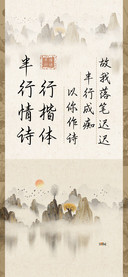 故我落笔迟迟
半行成痴
以你作诗
行楷体
半行情诗